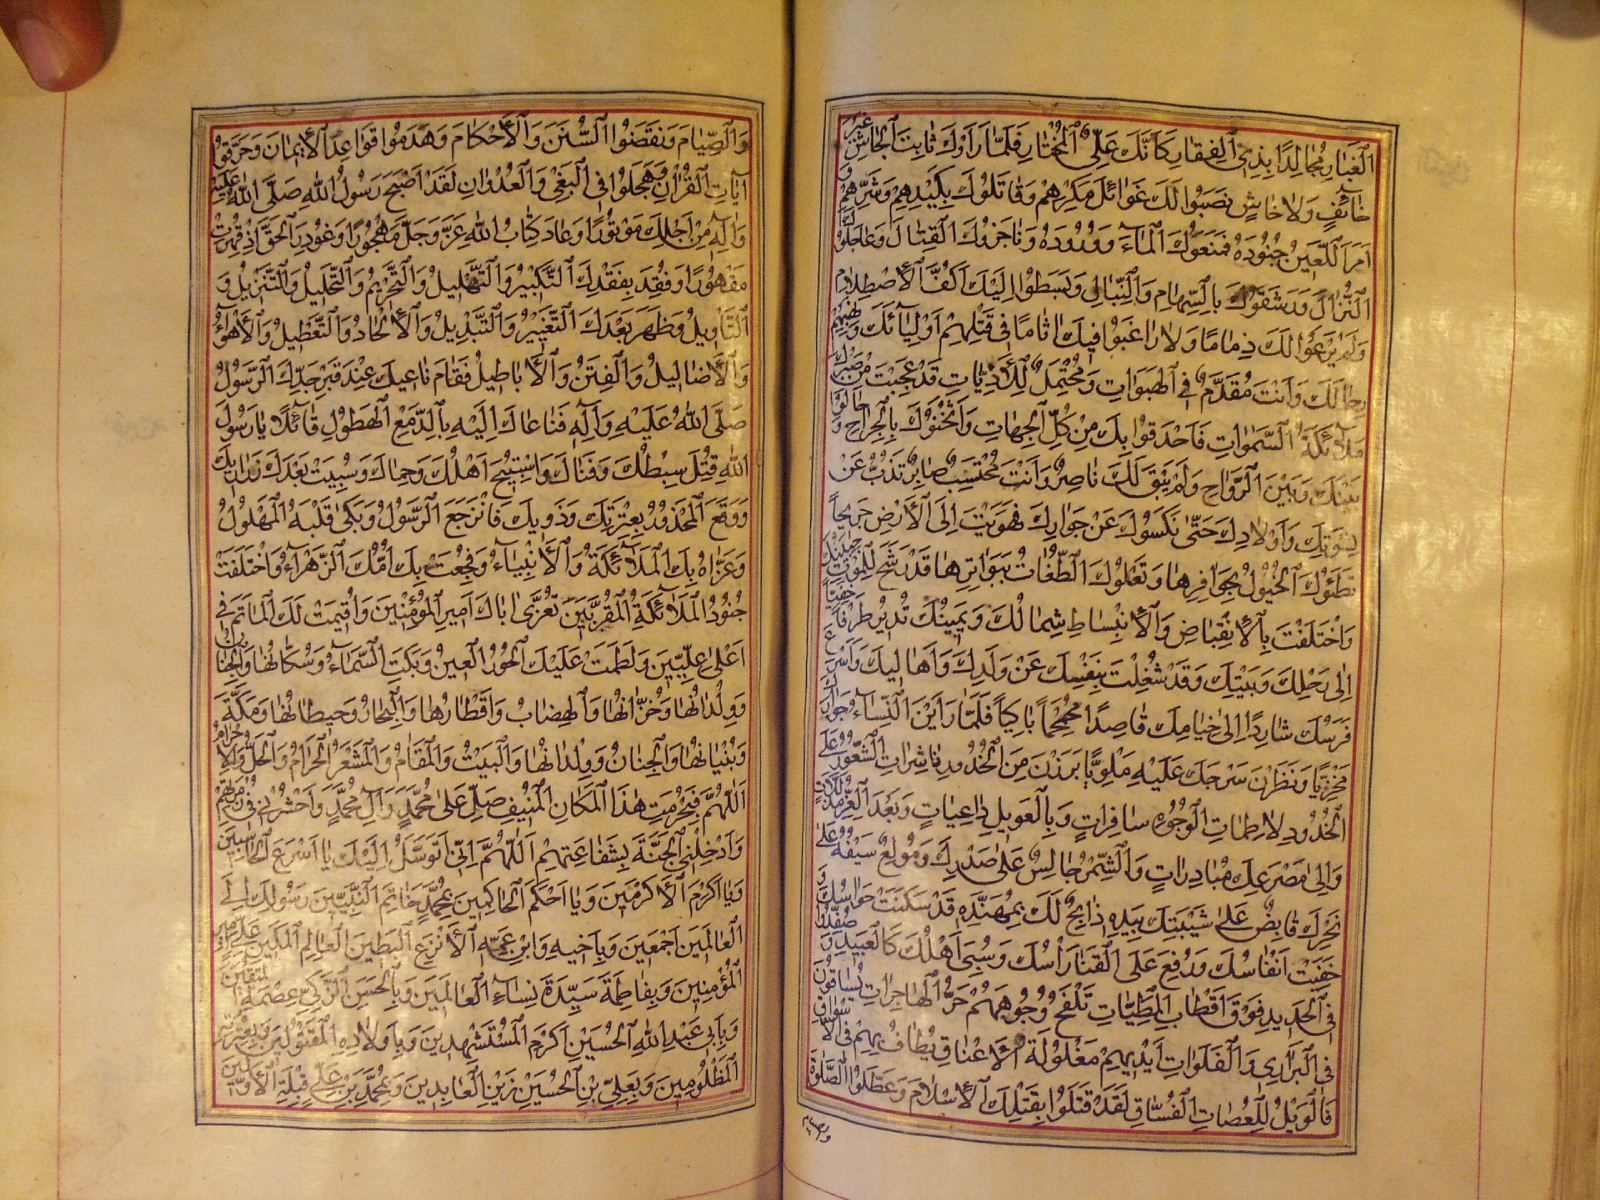 الغبار مجالدا بذي الفقار كأنك علي المختار فلما رأوك ثابت الجاش غير
خائف ولا خاش نصبوا لك غوائل مكرهم وقاتلوك بكيدهم وشرهم و
امر اللعين جنوده فمنعوك الماء ووروده وناجزوك القتال وعاجلوك
النزال ورشقوك بالسهام والنبال وبسطوا اليك اكف الاصطلام
ولم يرعوا لك ذماما ولا راغبوا فيك اثاما في قتلهم اوليائك ونهبهم
رحالك وانت مقدم في الهبوات ومحتمل للأذيات قد عجبت من صبرك
ملائكة السموات فاحدقوا بك من كل الجهات واثخنوك بالجراح وحالوا
بينك وبين الرواح ولم يبق لك ناصر وانت محتسب صابر تذب عن
نسوتك واولادك حتى نكسوك عن جوادك فهويت الى الأرض جريحا
تطئوك الخيول بحوافرها وتعلوك الطغات ببواترها قد رشح للموت جبينك
واختلفت بالأنقباض والأنبساط شمالك ويمينك تدير طرفا خفيا
الى رحلك وبيتك وقد شغلت بنفسك عن ولدك واهاليك واسرع
فرسك شاردا الى خيامك قاصدا محمحما باكيا فلما راين النساء جوادك
مخزيا ونظرن سرجك عليه ملويا برزن من الخدور ناشرات الشعور على
الخدود لاطمات الوجوه سافرات وبالعويل داعيات وبعد العز مذللات
والى مصرعك مبادرات والشمر جالس على صدرك ومولع سيفه على
نحرك قابض على شيبتك بيده ذابح لك بمهنده قد سكنت حواسك و
خفيت انفاسك ورفع على القنا راسك وسبي اهلك كالعبيد وصفدوا
في الحديد فوق اقطاب المطيات تلفح وجوههم حر الهاجرات يساقون
في البراري والفلوات ايديهم مغلولة الى الأعناق يطاف بهم في الأسواق
فالويل للعصات الفساق لقد قتلوا بقتلك الاسلام وعطلوا الصلوة
والصيام
والصيام ونقضوا السنن والأحكام وهدموا قواعد الأيمان وحرفوا
آيات القرآن وهملجوا في البغي والعدوان لقد اصبح رسول الله صلى الله عليه
وآله من اجلك موتورا وعاد كتاب الله عز وجل مهجورا وغودر الحق اذ قهرت
مقهورا وفقد بفقدك التكبير والتهليل والتحريم والتحليل والتنزيل و
التأويل وظهر بعدك التغيير والتبديل والألحاد والتعطيل والأهواء
والأضاليل والفتن والأباطيل فقام ناعيك عند قبر جدك الرسول
صلى الله عليه وآله فنعاك اليه بالدمع الهطول قائلا يا رسول
الله قتل سبطك وفتاك واستبيح اهلك وحماك وسبيت بعدك ذراريك
ووقع المحذور بعترتك وذويك فانزعج الرسول وبكى قلبه المهول
وعزاه بك الملائكة والأنبياء وفجعت بك امك الزهراء واختلفت
جنود الملائكة المقربين تعزي اباك امير المؤمنين واقيمت لك المآتم في
اعلى عليين ولطمت عليك الحور العين وبكت السماء وسكانها والجنان
وولدانها وخزانها والهضاب واقطارها والبحار وحيطانها ومكة
وبنيانها والجنان وولدانها والبيت والمقام والمشعر الحرام والحل والاحرام
اللهم فبحرمت هذا المكان المنيف صل على محمد وآل محمد واحشرني في زمرتهم
وادخلني الجنة بشفاعتهم اللهم اني اتوسل اليك يا اسرع الحاسبين
ويا اكرم الأكرمين ويا احكم الحاكمين بمحمد خاتم النبيين رسولك الى
العالمين اجمعين وباخيه وابن عمه الأنزع البطين العالم المكين علي امير
المؤمنين وبفاطمة سيدة نساء العالمين وبالحسن الزكي عصمة المتقين
وبابي عبد الله الحسين اكرم المستشهدين وباولاده المقتولين وبعترته
المظلومين وبعلي بن الحسين زين العابدين وبمحمد بن علي قبلة الأوابين